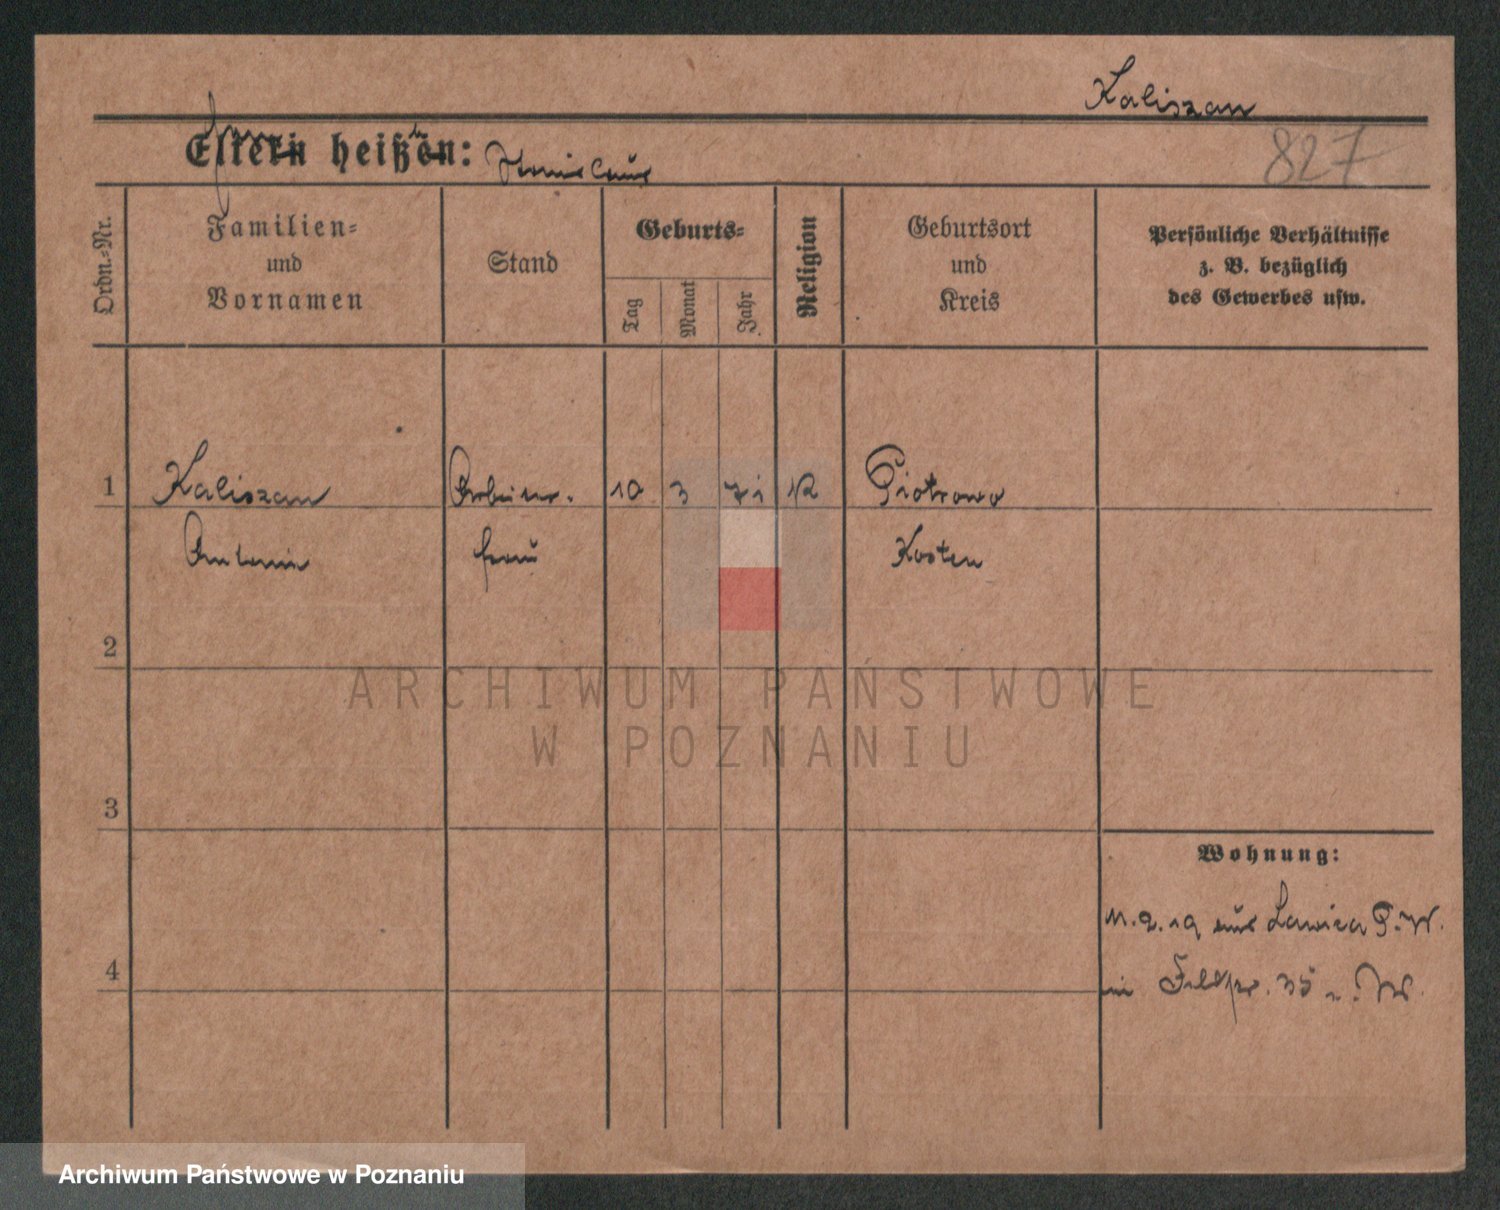 Kaliszan
827
Eltern heißen: Stanislaus
Ordn.-Nr.
Familien-
und
Vornamen
Stand
Geburts-
Tag
Monat
Jahr
Religion
Geburtsort
und
Kreis
Persönliche Verhältnisse
z. B. bezüglich
des Gewerbes usw.
1
Kaliszan Arbeiter- 10 3 71 K Piotrowo
Antonie frau Kosten
2
ARCHIWUM PAŃSTWOWE
W POZNANIU
3
Wohnung:
11.2.19 aus Lawica P.W.
4
in 35
Archiwum Państwowe w Poznaniu